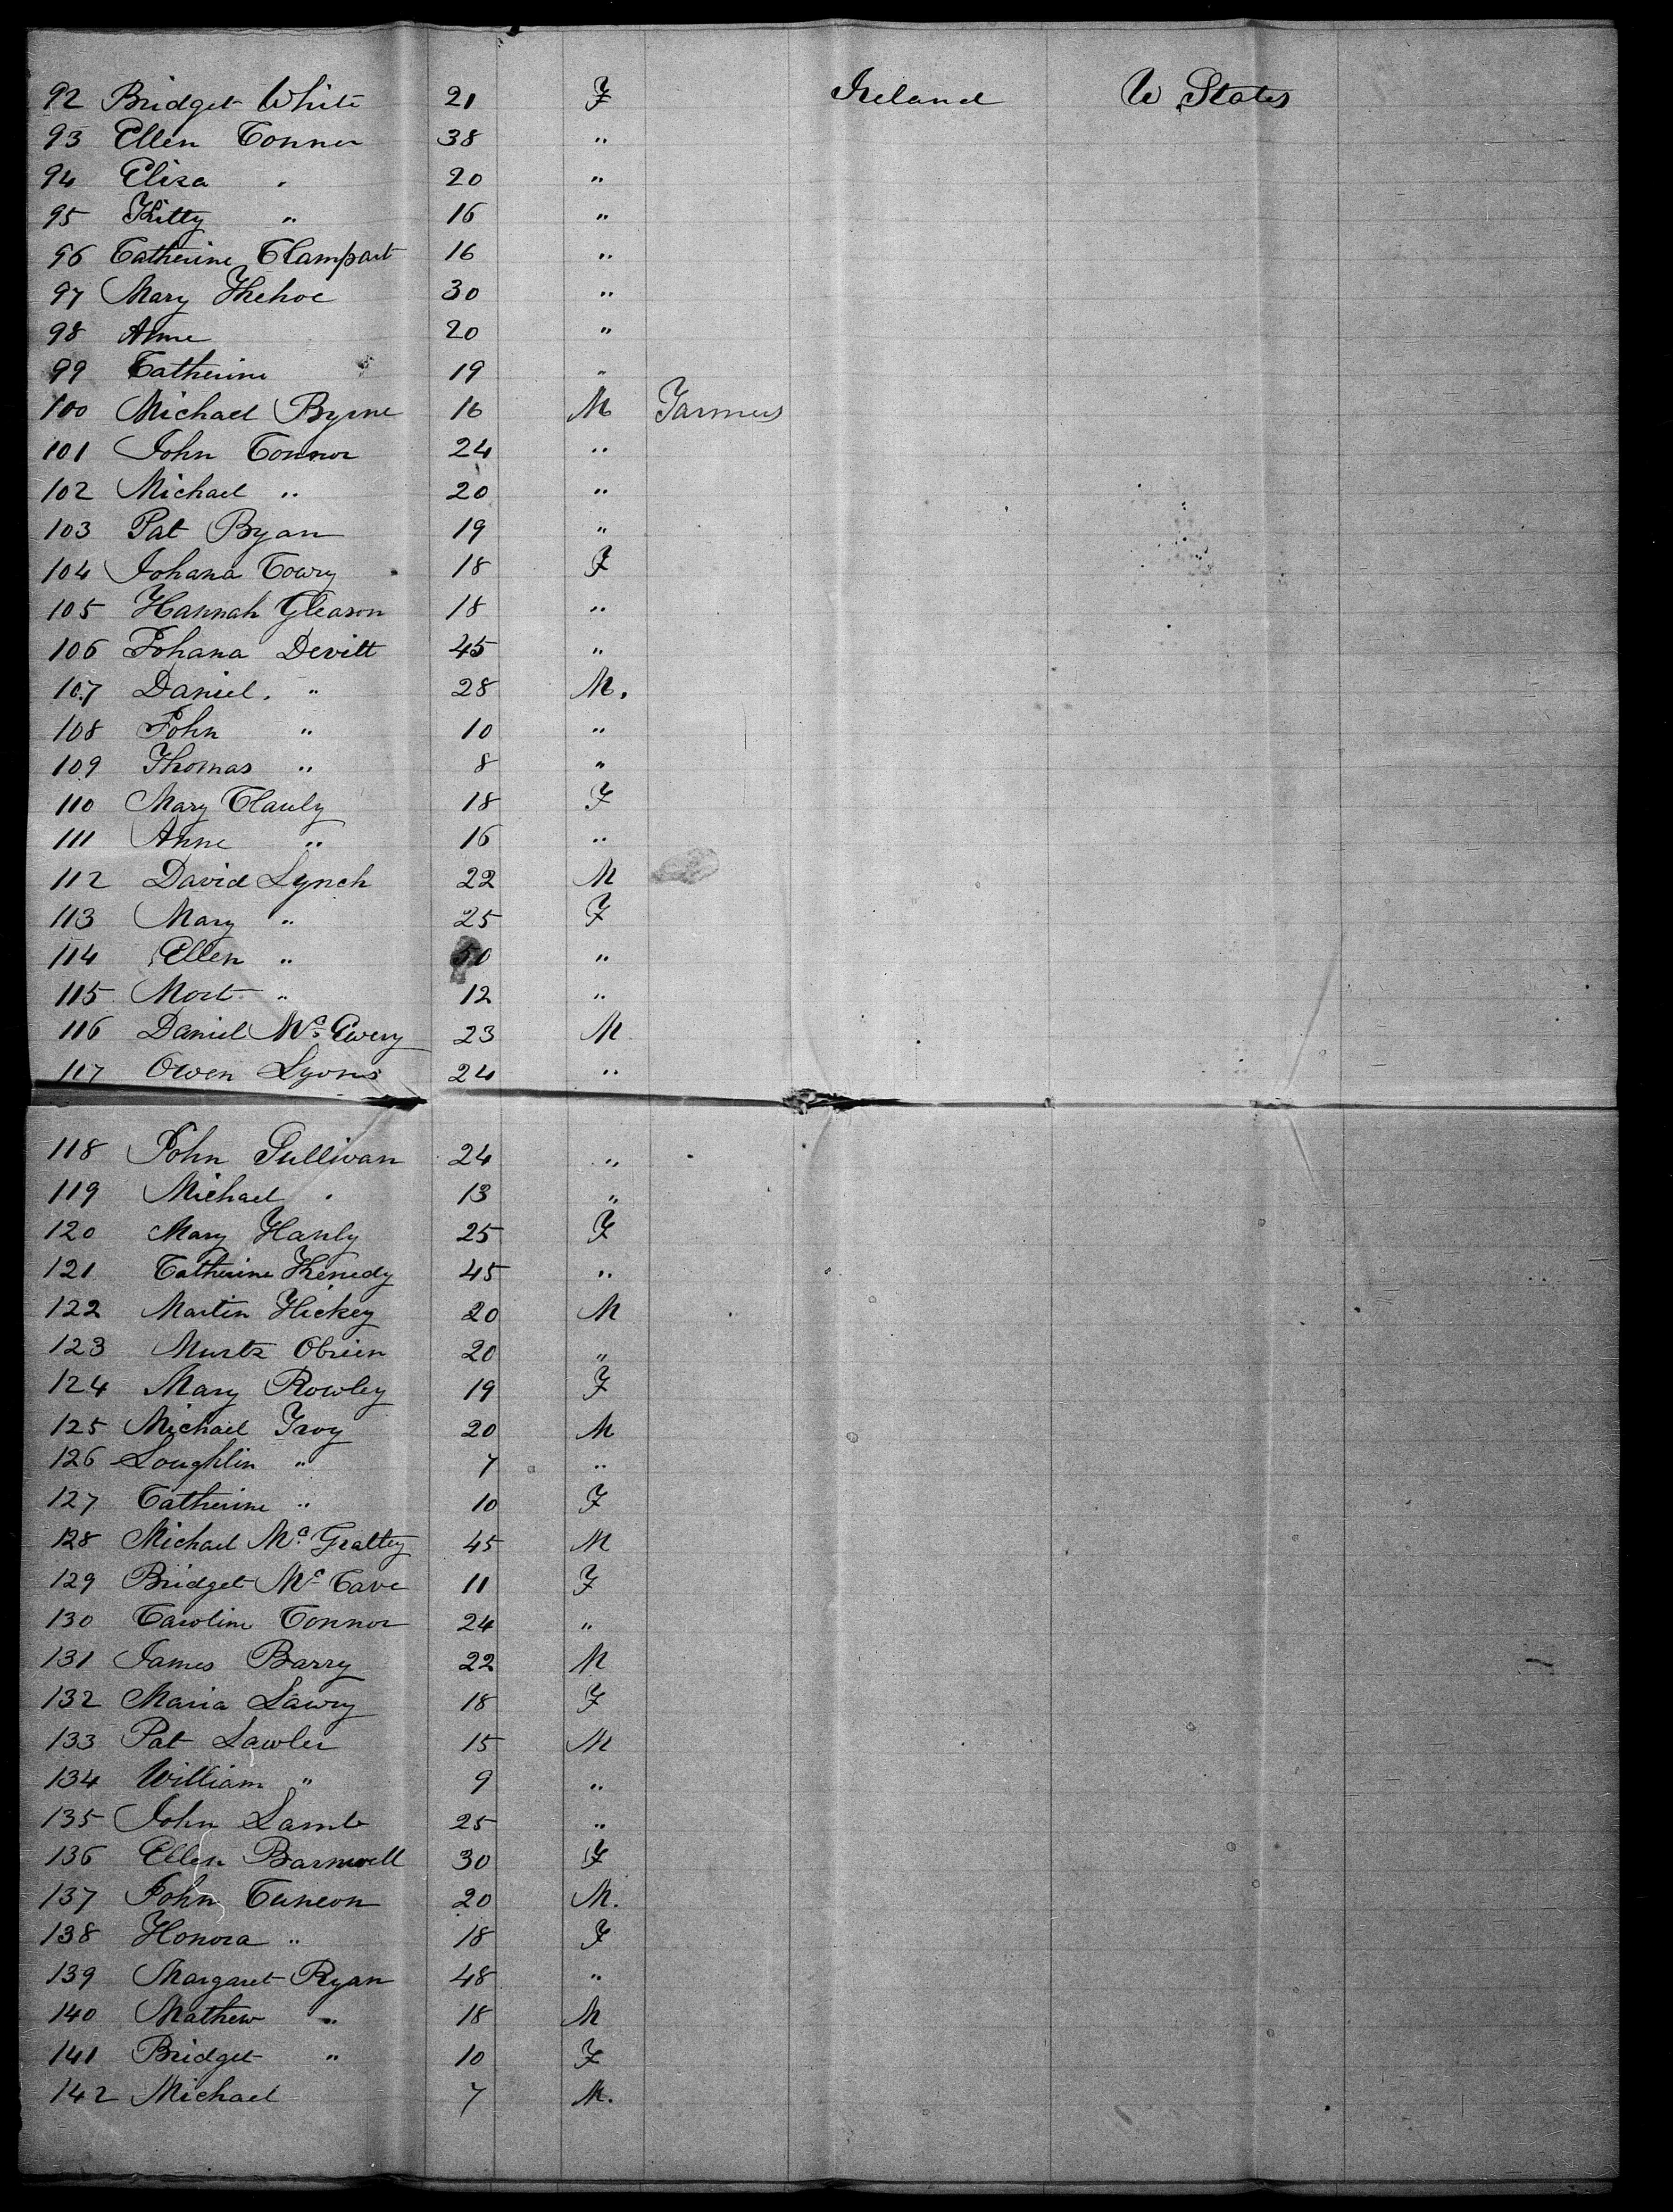 92 Bridget White 21 F Ireland U States
93 Ellen Conner 38 "
94 Eliza " 20 "
95 Kitty " 16 "
96 Catherine Clampart 16 "
97 Mary Kehoe 30 "
98 Anne 20 "
99 Catherine 19 "
100 Michael Byrne 16 M Farmers
101 John Connor 24 "
102 Michael " 20 "
103 Pat Ryan 19 "
104 Johana Cowry 18 F
105 Hannah Gleason 18 "
106 Johana Devitt 45 "
107 Daniel. " 28 M.
108 John " 10 "
109 Thomas " 8 "
110 Mary Clauly 18 F
111 Anne " 16 "
112 David Lynch 22 M
113 Mary " 25 F
114 Ellen " 50 "
115 Mort " 12 "
116 Daniel Mc 23 M
117 Owen Lyons 24 "
118 John Sullivan 24 "
119 Michael " 13 "
120 Mary Hanly 25 F
121 Catherine Kenedy 45 "
122 Martin Hickey 20 M
123 Murtz Obrien 20 "
124 Mary Rowley 19 F
125 Michael Troy 20 M
126 Loughlin " 7 "
127 Catherine " 10 F
128 Michael Mc Grattey 45 M
129 Bridget Mc Cave 11 F
130 Caroline Connor 24 "
131 James Barry 22 M
132 Maria Lawry 18 F
133 Pat Lawler 15 M
134 William " 9 "
135 John Lamb 25 "
136 Ellen Barnwell 30 F
137 John Cuneon 20 M.
138 Honora " 18 F
139 Margaret Ryan 48 "
140 Mathew " 18 M
141 Bridget " 10 F
142 Michael 7 M.